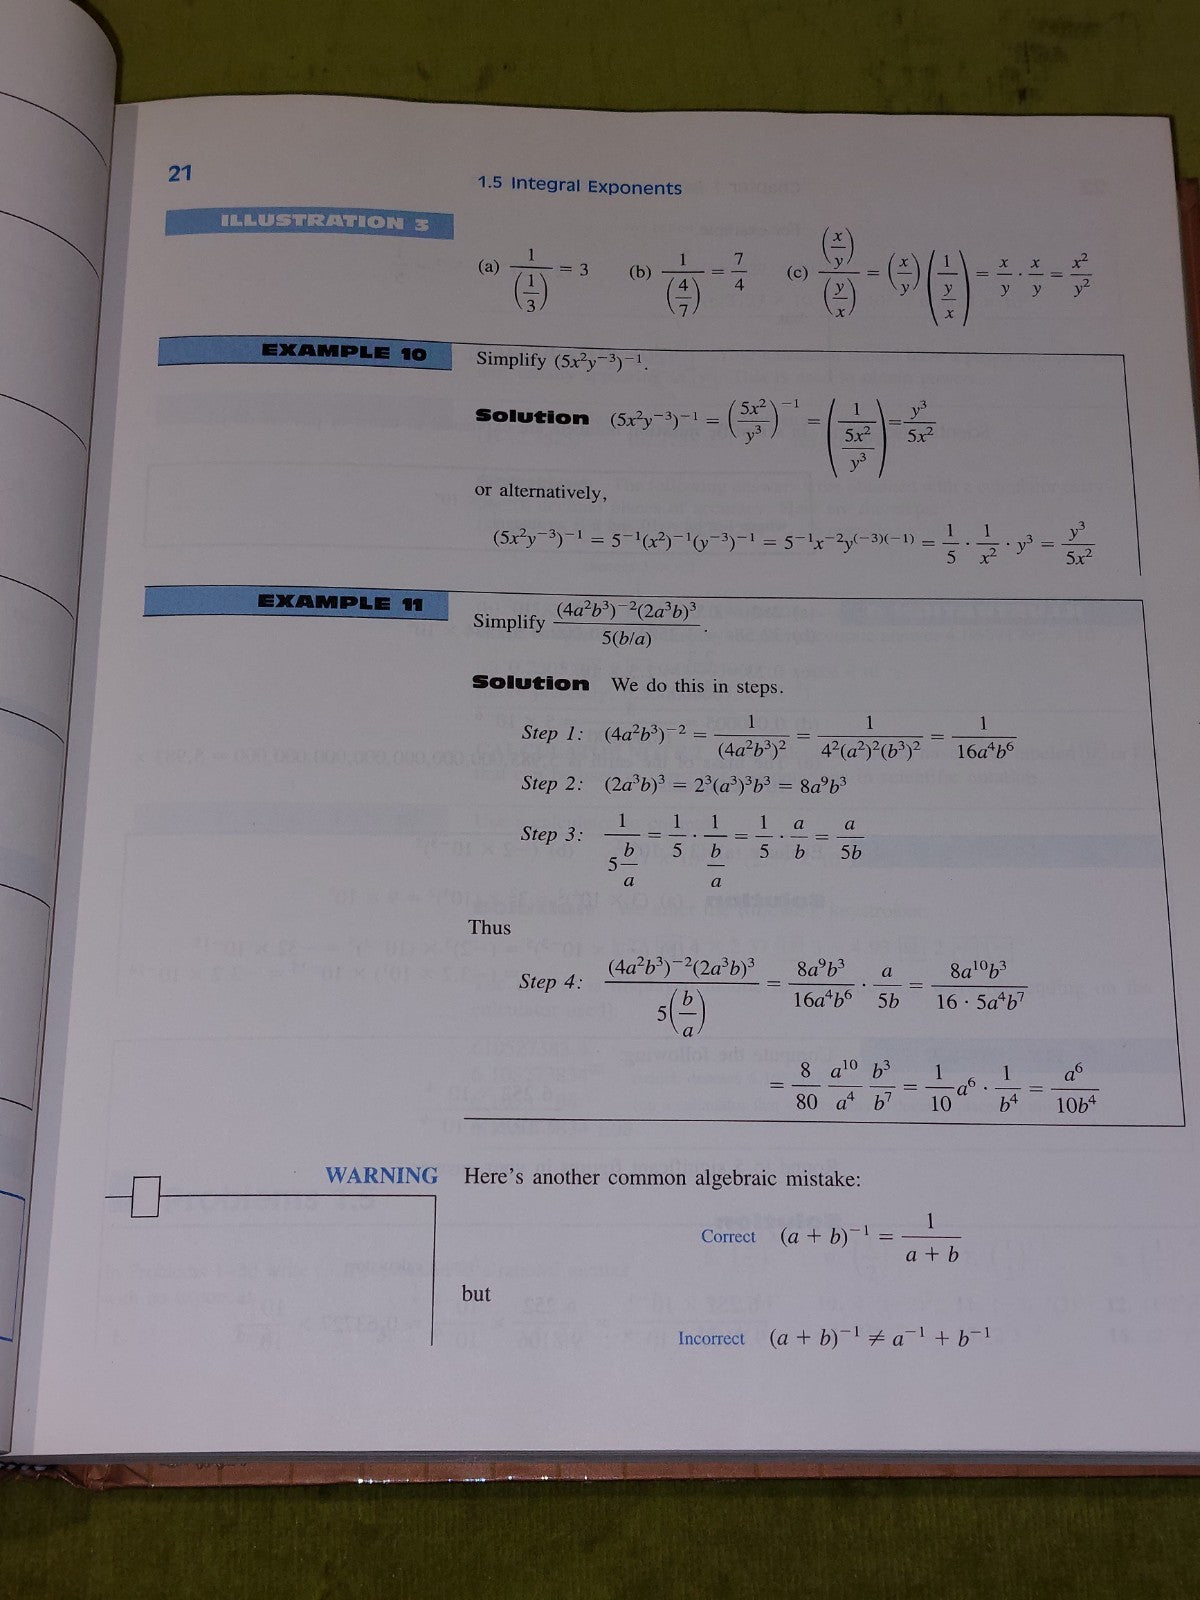 21
1.5 Integral Exponents
ILLUSTRATION 3
(a) 1/(1/3) = 3 (b) 1/(4/7) = 7/4 (c) (x/y)/(y/x) = (x/y)(1/(y/x)) = x/y · x/y = x²/y²
EXAMPLE 10
Simplify (5x²y⁻³)⁻¹.
Solution (5x²y⁻³)⁻¹ = (5x²/y³)⁻¹ = (1/(5x²/y³)) = y³/5x²
or alternatively,
(5x²y⁻³)⁻¹ = 5⁻¹(x²)⁻¹(y⁻³)⁻¹ = 5⁻¹x⁻²y⁽⁻³⁾⁽⁻¹⁾ = 1/5 · 1/x² · y³ = y³/5x²
EXAMPLE 11
Simplify (4a²b³)⁻²(2a³b)³/5(b/a).
Solution We do this in steps.
Step 1: (4a²b³)⁻² = 1/(4a²b³)² = 1/4²(a²)²(b³)² = 1/16a⁴b⁶
Step 2: (2a³b)³ = 2³(a³)³b³ = 8a⁹b³
Step 3: 1/(5 b/a) = 1/5 · 1/(b/a) = 1/5 · a/b = a/5b
Thus
Step 4: (4a²b³)⁻²(2a³b)³/5(b/a) = 8a⁹b³/16a⁴b⁶ · a/5b = 8a¹⁰b³/16 · 5a⁴b⁷
= 8/80 a¹⁰/a⁴ b³/b⁷ = 1/10 a⁶ · 1/b⁴ = a⁶/10b⁴
WARNING Here's another common algebraic mistake:
Correct (a + b)⁻¹ = 1/(a + b)
but
Incorrect (a + b)⁻¹ ≠ a⁻¹ + b⁻¹